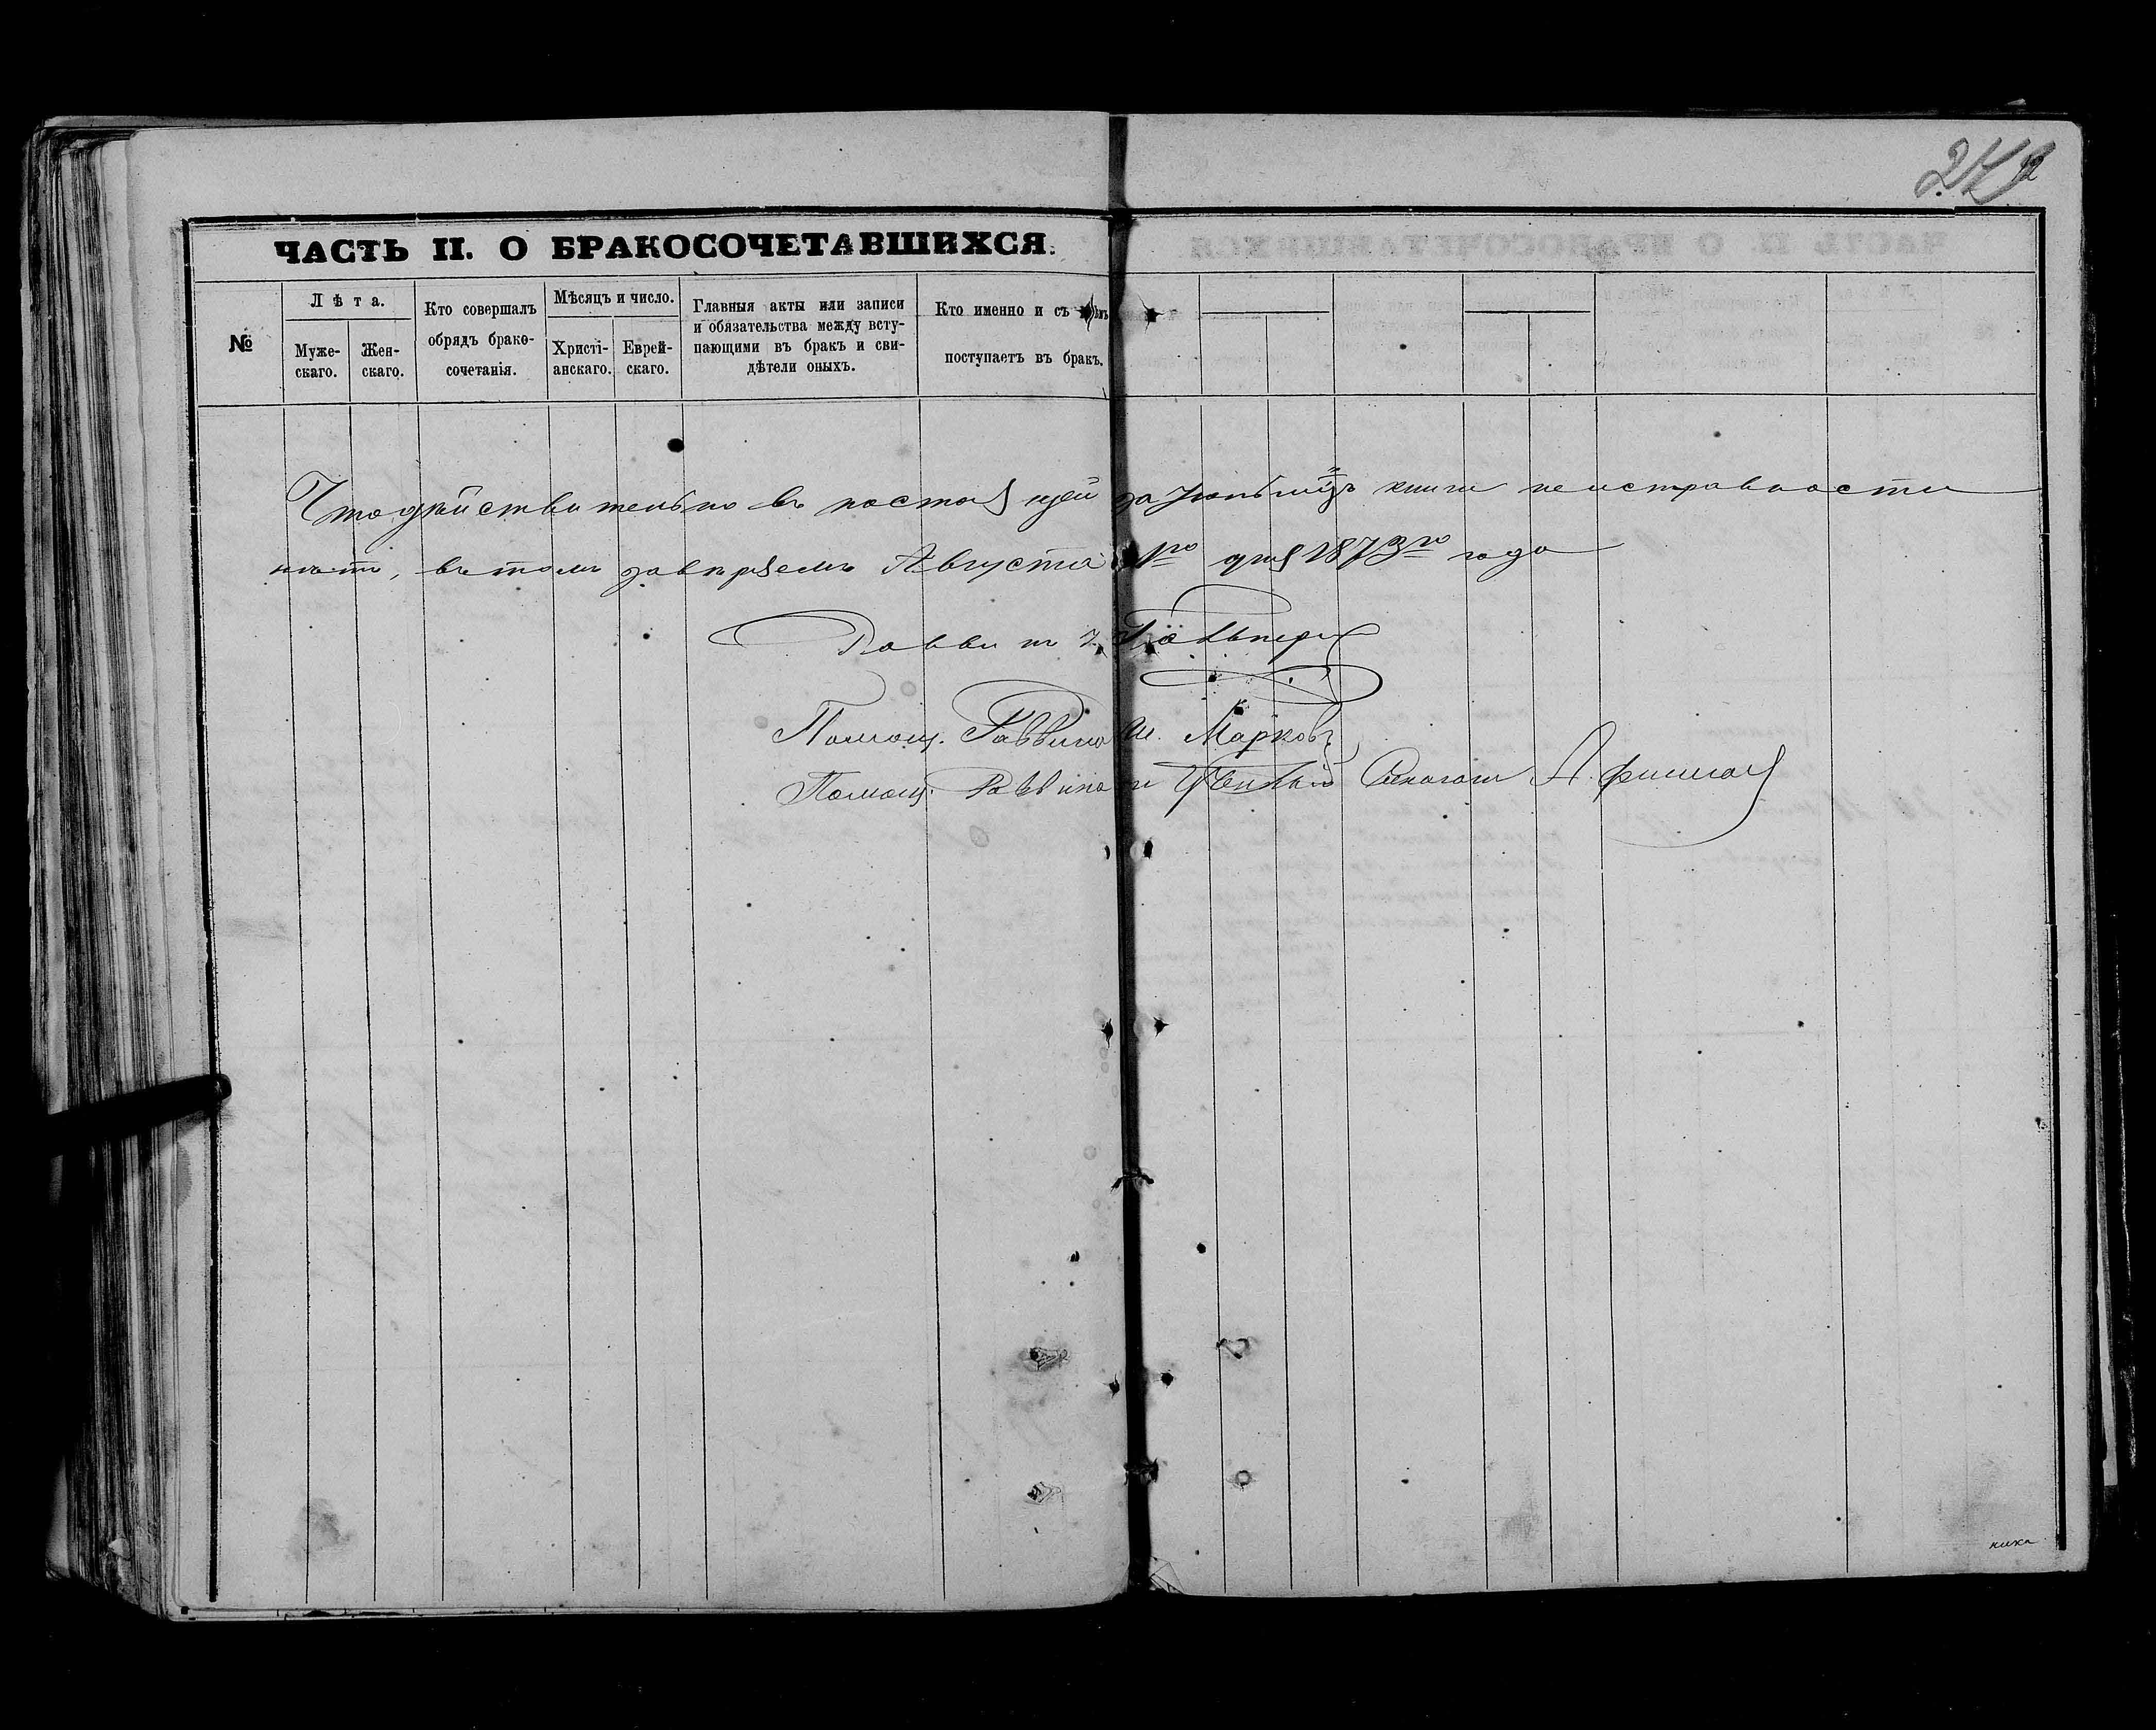 ЧАСТЬ II. О БРАКОСОЧЕТАВШИХСЯ.
№
Лѣта.
Муже-
скаго.
Жен-
скаго.
Кто совершалъ
обрядъ брако-
сочетанія.
Мѣсяцъ и число.
Христі-
анскаго.
Еврей-
скаго.
Главныя акты или записи
и обязательства между всту-
пающими въ бракъ и сви-
дѣтели оныхъ.
Кто именно и съ кѣмъ
поступаетъ въ бракъ.
Что дѣйствительно въ настоящей за книги неисправности
нѣтъ, въ томъ завѣряемъ Августа 1го дня 1873го года
Раввинъ
Помощ. Раввина Ш. Марковъ
Помощ. Раввина и Синагоги А.